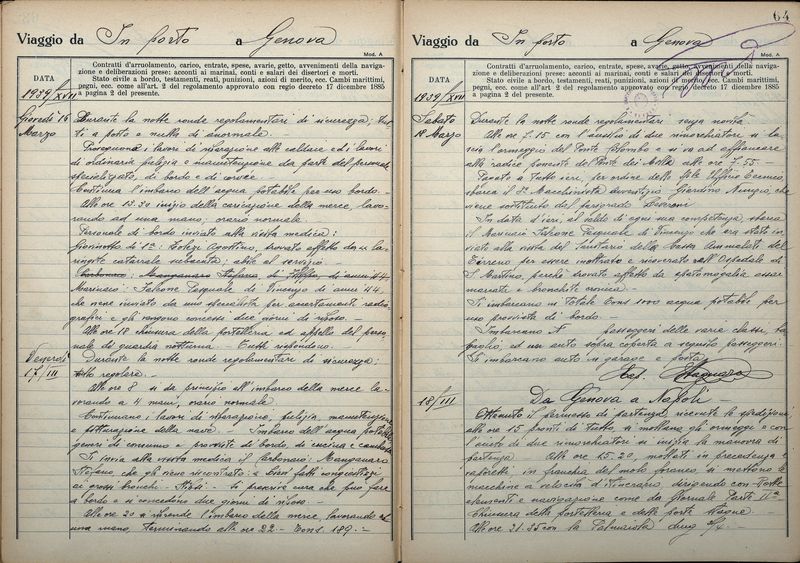 Viaggio da In porto a Genova
Mod. A
DATA
Contratti d'arruolamento, carico, entrate, spese, avarie, getto, avvenimenti della naviga-
zione e deliberazioni prese: acconti ai marinai, conti e salari dei disertori e morti.
Stato civile a bordo, testamenti, reati, punizioni, azioni di merito, ecc. Cambi marittimi,
pegni, ecc. come all'art. 2 del regolamento approvato con regio decreto 17 dicembre 1885
a pagina 2 del presente.
1939/XVII
Giovedì 16 Durante la notte ronde regolamentari di sicurezza; tut-
Marzo ti a posto e nulla di anormale.
Proseguono i lavori di riparazione alle caldaie e di lavori
di ordinaria pulizia e manutenzione da parte del personale
specializzato, di bordo e di
Continua l'imbarco dell'acqua potabile per uso bordo.
Alle ore 13.30 inizio della caricazione della merce, lavo-
rando ad una mano; orario normale.
Personale di bordo inviato alla visita medica:
Giovinotto di 1ª: Agostino, trovato affetto da la-
ringite catarrale subacuta; abile al servizio
Carbonaio: Manganaro Stefano di di anni 44
Marinaio: Pasquale di Vincenzo di anni 44
che viene inviato da uno specialista per accertamenti radio-
grafici e gli vengono concessi due giorni di riposo.
Alle ore 18 chiusura della portelleria ed appello del perso-
nale di guardia notturna - Tutti rispondono.
Venerdì Durante la notte ronde regolamentari di sicurezza;
17/III tutto regolare.
Alle ore 8 si dà principio all'imbarco della merce la-
vorando a 4 mani, orario normale.
Continuano i lavori di riparazione, pulizia, manutenzione
e della nave. - Imbarco dell'acqua potabile
generi di consumo e provviste di bordo, di cucina e
Si invia alla visita medica il carbonaio: Manganaro
Stefano che gli viene riscontrato:
ai grossi bronchi - - Si prescrive cura che può fare
a bordo e si concedono due giorni di riposo.
Alle ore 20 si riprende l'imbarco della merce, lavorando ad
una mano, terminando alle ore 22 - Tons. 189. -
64
Viaggio da In porto a Genova
Mod. A
DATA
Contratti d'arruolamento, carico, entrate, spese, avarie, getto, avvenimenti della naviga-
zione e deliberazioni prese: acconti ai marinai, conti e salari dei disertori e morti.
Stato civile a bordo, testamenti, reati, punizioni, azioni di merito, ecc. Cambi marittimi,
pegni, ecc. come all'art. 2 del regolamento approvato con regio decreto 17 dicembre 1885
a pagina 2 del presente.
1939/XVII
Sabato Durante la notte ronde regolamentari senza novità.
18 Marzo Alle ore 7.15 con l'ausilio di due rimorchiatori si la-
scia l'ormeggio del Ponte Colombo e si va ad affiancare
alla radice ponente del Ponte dei Mille alle ore 7.55 -
Pronto a tutto ieri, per ordine dello Ufficio Tecnico,
sbarca il 3º Macchinista Giardino Nunzio, che
viene sostituito dal parigrado
In data d'ieri, al saldo di ogni sua competenza, sbarca
il Marinaio Pasquale di Vincenzo che era stato in-
viato alla visita del Sanitario della Cassa Ammalati del
Tirreno per essere inoltrato e ricoverato all'Ospedale di
S. Martino, perché trovato affetto da epatomegalia assai
marcata e bronchite cronica. -
Si imbarcano in totale Tons 1000 acqua potabile per
uso provvista di bordo. -
Imbarcano Nº passeggeri delle varie classi, ba-
gaglio, ed un auto sopra coperta a seguito passeggeri.
Si imbarcano auto in garage e posta.
18/III Da Genova a Napoli -
Ottenuto il permesso di partenza, ricevute le spedizioni,
alle ore 15 pronti di tutto si mollano gli ormeggi e con
l'aiuto di due rimorchiatori si inizia la manovra di
partenza. Alle ore 15.20, mollati in precedenza i
rimorchi in franchia del molo foraneo, si mettono le
macchine a velocità d'itinerario, dirigendo con Rotte
elementi e navigazione come da Giornale Parte IIª
Chiusura della portelleria e delle porte stagne -
Alle ore 21.35 con la Palmaiola